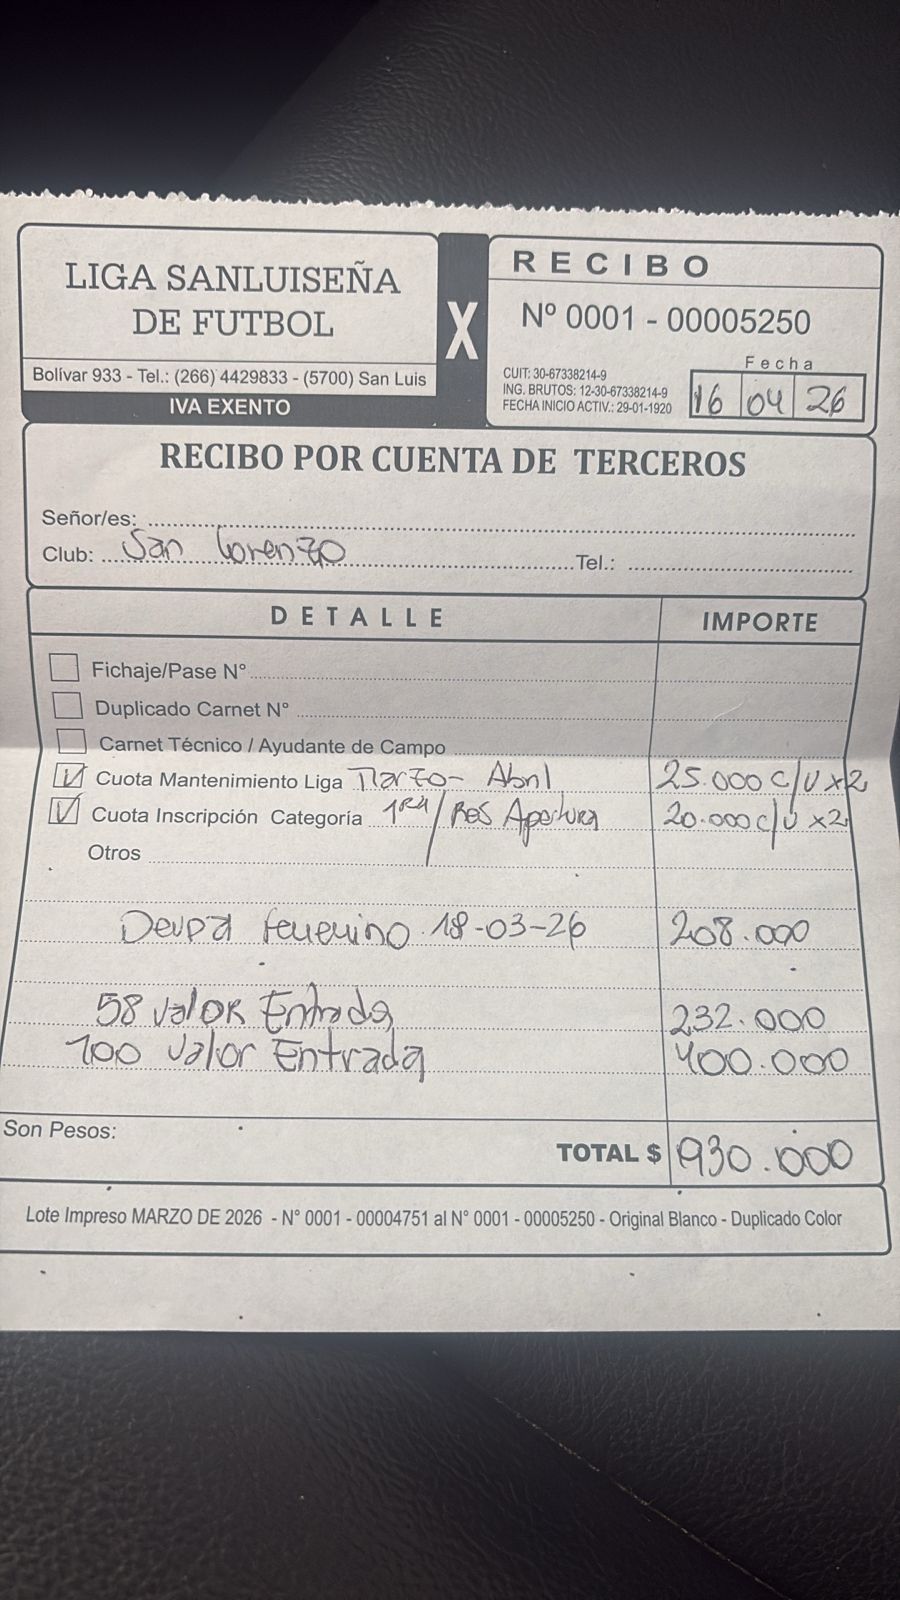 LIGA SANLUISEÑA
DE FUTBOL
Bolívar 933 - Tel.: (266) 4429833 - (5700) San Luis
IVA EXENTO
X
RECIBO
Nº 0001 - 00005250
Fecha
CUIT: 30-67338214-9
ING. BRUTOS: 12-30-67338214-9
FECHA INICIO ACTIV.: 29-01-1920
16 04 26
RECIBO POR CUENTA DE TERCEROS
Señor/es:
Club: San Lorenzo Tel.:
DETALLE IMPORTE
Fichaje/Pase N°
Duplicado Carnet N°
Carnet Técnico / Ayudante de Campo
Cuota Mantenimiento Liga Marzo - Abril 25.000 c/u x2
Cuota Inscripción Categoría 1ra/Res Apertura 20.000 c/u x2
Otros
Deuda femenino 18-03-26 208.000
58 valor Entrada 232.000
100 valor Entrada 400.000
Son Pesos:
TOTAL $ 930.000
Lote Impreso MARZO DE 2026 - N° 0001 - 00004751 al N° 0001 - 00005250 - Original Blanco - Duplicado Color